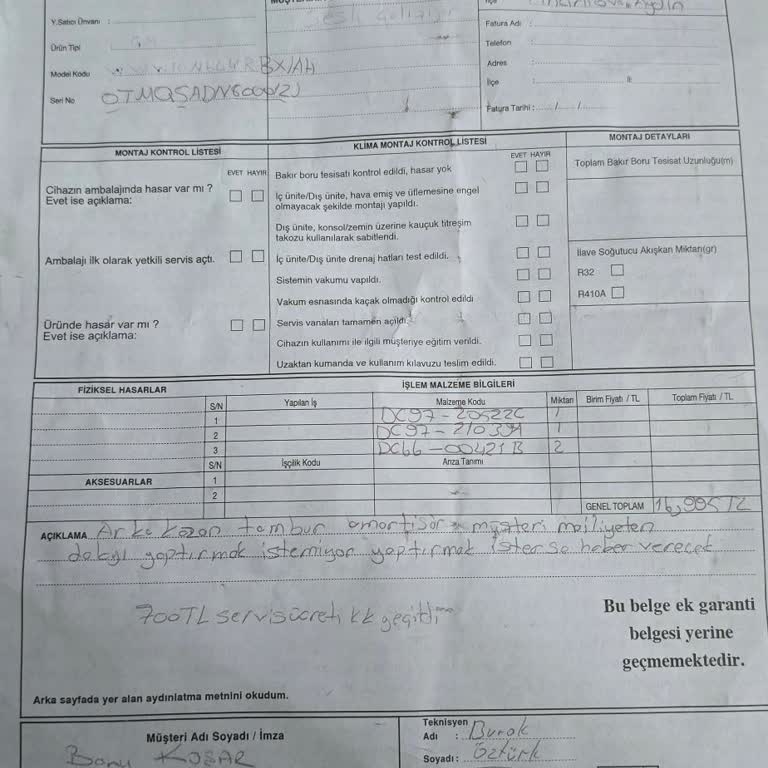 Y.Satıcı Ünvanı :
Fatura Adı :
Ürün Tipi
Telefon :
Model Kodu BX/AH
Adres :
İlçe : İl:
Seri No
Fatura Tarihi : / /
MONTAJ KONTROL LİSTESİ
KLİMA MONTAJ KONTROL LİSTESİ
MONTAJ DETAYLARI
EVET HAYIR
EVET HAYIR
Cihazın ambalajında hasar var mı ?
Evet ise açıklama:
Ambalajı ilk olarak yetkili servis açtı.
Üründe hasar var mı ?
Evet ise açıklama:
Bakır boru tesisatı kontrol edildi, hasar yok
İç ünite/Dış ünite, hava emiş ve üflemesine engel
olmayacak şekilde montajı yapıldı.
Dış ünite, konsol/zemin üzerine kauçuk titreşim
takozu kullanılarak sabitlendi.
İç ünite/Dış ünite drenaj hatları test edildi.
Sistemin vakumu yapıldı.
Vakum esnasında kaçak olmadığı kontrol edildi
Servis vanaları tamamen açıldı.
Cihazın kullanımı ile ilgili müşteriye eğitim verildi.
Uzaktan kumanda ve kullanım kılavuzu teslim edildi.
Toplam Bakır Boru Tesisat Uzunluğu(m)
İlave Soğutucu Akışkan Miktarı(gr)
R32
R410A
FİZİKSEL HASARLAR
İŞLEM MALZEME BİLGİLERİ
S/N Yapılan İş Malzeme Kodu Miktarı Birim Fiyatı / TL Toplam Fiyatı / TL
1 DC97-20522C 1
2 DC97-21039A 1
3 DC66-00421B 2
AKSESUARLAR
S/N İşçilik Kodu Arıza Tanımı
1
2
GENEL TOPLAM 16,995 TL
AÇIKLAMA Arka kazan tambur amortisör müşteri maliyeten
dolayı yaptırmak istemiyor yaptırmak isterse haber verecek
700TL servis ücreti kk geçildi
Bu belge ek garanti
belgesi yerine
geçmemektedir.
Arka sayfada yer alan aydınlatma metnini okudum.
Müşteri Adı Soyadı / İmza
Banu KOŞAR
Teknisyen
Adı : Burak
Soyadı : Öztürk